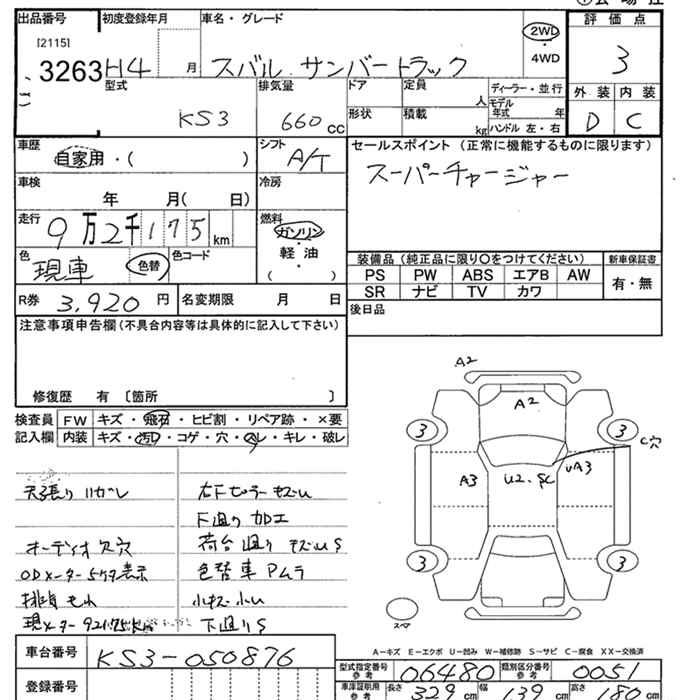 出品番号 初度登録年月 車名・グレード 評価点
[2115]
3263 H4 月 スバル サンバートラック 2WD・4WD 3
型式 KS3 排気量 660 cc ドア 定員 人 ディーラー・並行
形状 積載 kg モデル年式 年 ハンドル 左・右
外装 内装
D C
車歴 自家用・( ) シフト A/T セールスポイント (正常に機能するものに限ります)
スーパーチャージャー
車検 年 月( 日) 冷房
走行 9万2千175 km 燃料 ガソリン・軽油 ( ・ )
色 現車 色替 色コード
装備品 (純正品に限り○をつけてください) 新車保証書
PS PW ABS エアB AW 有・無
SR ナビ TV カワ
R券 3,920円 名変期限 月 日 後日品
注意事項申告欄(不具合内容等は具体的に記入して下さい)
修復歴 有 〔箇所 〕
検査員 FW キズ・飛石・ヒビ割・リペア跡・×要
記入欄 内装 キズ・汚れ・コゲ・穴・ハレ・キレ・破レ
天張りハガレ
下廻り 加工
オーディオ欠穴 荷台廻り
ODメーター5ケタ表示 色替車 Aムラ
排気もれ 小キズ小U
現メーター92175km 下廻りS
A2
A2
3 3
C穴
A3 U2・SC UA3
3 3
スマ
A−キズ E−エクボ U−凹み W−補修跡 S−サビ C−腐食 XX−交換済
車台番号 KS3-050876
登録番号
型式指定番号 参考 06480 類別区分番号 参考 0051
車庫証明用 参考 長さ 329 cm 幅 139 cm 高さ 180 cm